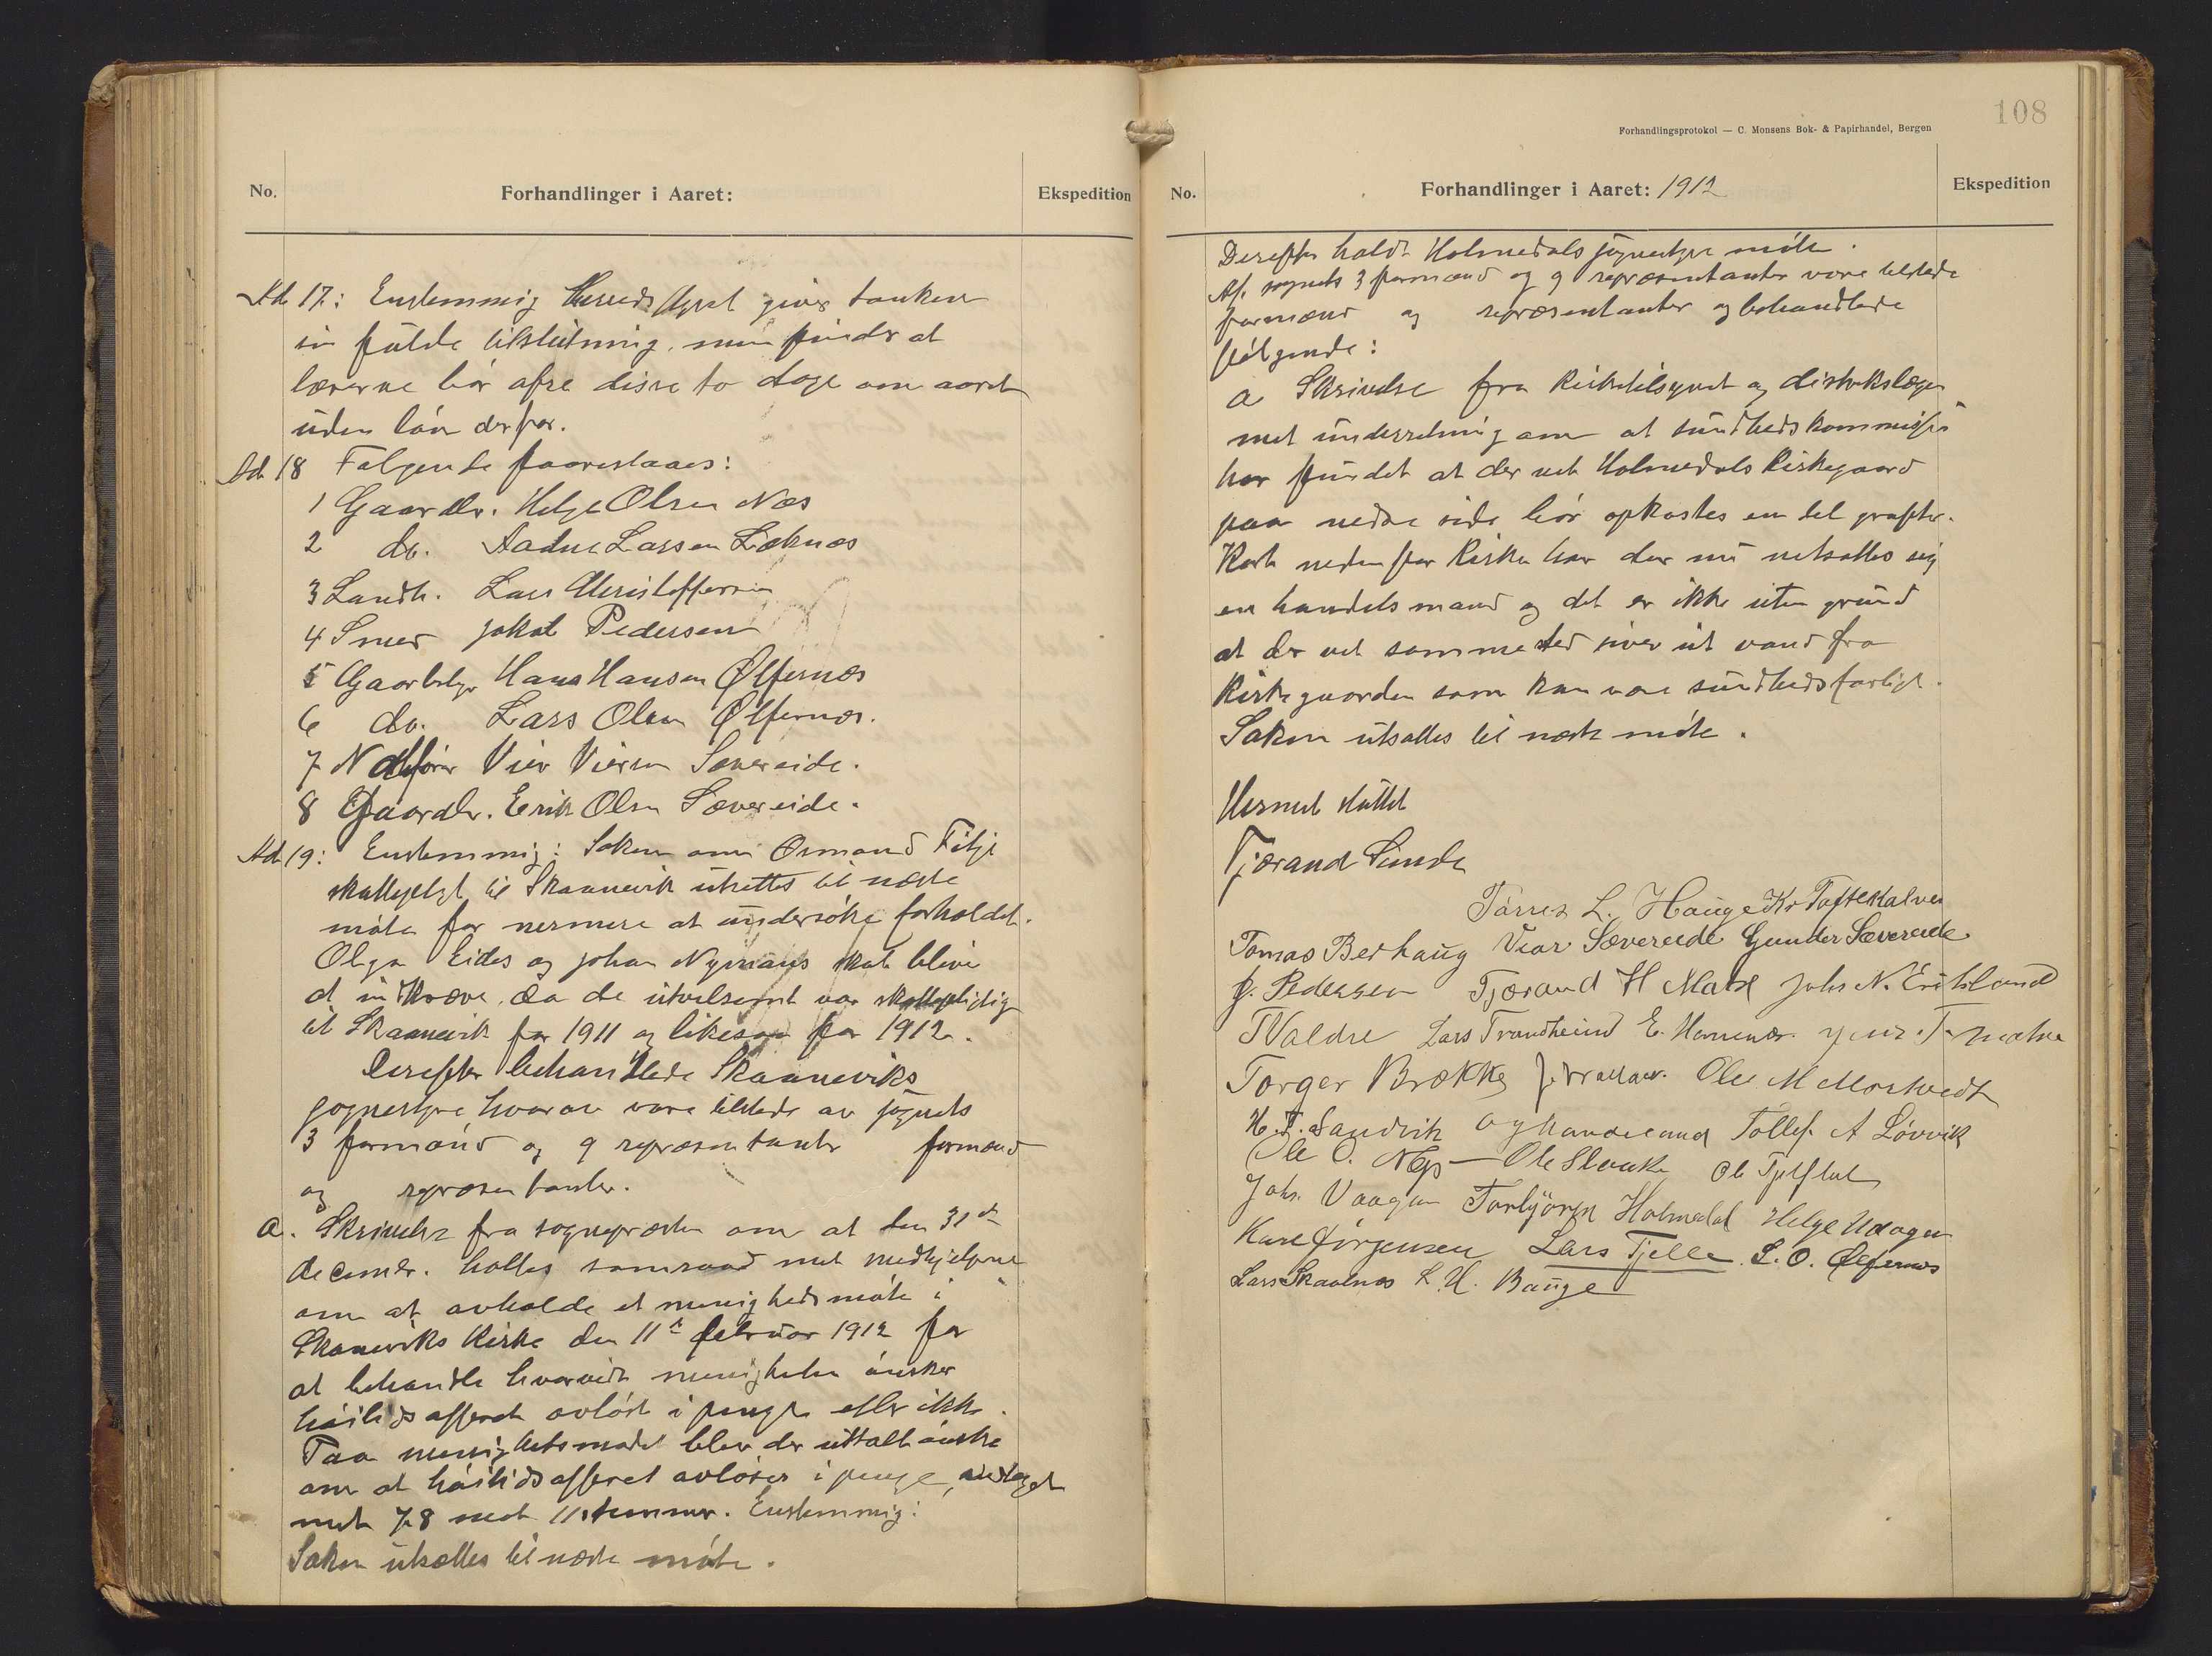 No.
Forhandlinger i Aaret:
Ekspedition
Ad 17: Enstemmig Herredsstyret giver tanken
sin fulde tilslutning, men finder at
lærerne bør ofre disse to dage om aaret
uden løn derfor.
Ad 18 Følgende foareslaaes:
1 Gaardbr. Helge Olsen Næs
2 do. Aadne Larssen Løknæs
3 Landh. Lars Christoffersen
4 Smed Jakob Pedersen
5 Gaardbr. Hans Hansen Ølfernæs
6 do. Lars Olsen Ølfernæs.
7 Notfører Vier Viersen Sævereide.
8 Gaardbr. Erik Olsen Sævereide.
Ad 19: Enstemmig: Saken om Osmand Fitje
skattepligt til Skaanevik utsettes til næste
møte for nermere at undersøke forholdet.
Olga Eides og Johan Nymans skat blive
at indkræve, da de utvilsomt var skattepligtig
til Skaanevik for 1911 og likesaa for 1912.
Derefter behandlede Skaaneviks
sognestyre hvorav vare tilstede av sognets
3 formænd og 9 repræsentanter formænd
og repræsentanter.
a. Skrivelse fra sognepresten om at den 31te
decembr. holtes samraad med medhjelperne
om at avholde et menighedsmøte i
Skaneviks Kirke den 11te februar 1912 for
at behandle hvorvidt menigheten ønsker
høitidsofferet avløst i penge eller ikke.
Paa menighetsmødet blev der uttalt ønske
om at høitidsofferet avløses i penge, vedtaget
med 78 mot 11 stemmer. Enstemmig:
Saken utsættes til næste møte.
108
Forhandlingsprotokol — C. Monsens Bok- & Papirhandel, Bergen
No.
Forhandlinger i Aaret: 1912
Ekspedition
Derefter holdt Holmedals sognestyre møte.
Af sognets 3 formænd og 9 repræsentanter vare tilstede
formænd og repræsentanter og behandlede
følgende:
a Skrivelse fra Kirketilsynet og distriktslægen
med underretning om at sundhedskommissjon
har fundet at der ved Holmedals Kirkegaard
paa nedre side bør opkastes en del grøfter.
Kort nedenfor Kirken har der nu netsattes sig
en handelsmand og det er ikke uten grund
at der ved samme sted siver ut vand fra
Kirkegaarden som kan være sundhedsfarligt.
Saken utsattes til næste møte.
Hermed sluttet
Tjærand Sunde
Tørres L. Hauge Kr Toftekalven
Tomas Berhaug Viar Sævereide Gunder Sævereide
J. Pedersen Tjærand H Matre Johs N. Eriksland
TValdre Lars Trondheim E. Hamnær. Jens T. Matre
Torger Brække Ole M Mostvedt
H. T. Sandvik Aghandeland Tollef A Løvvik
Ole O. Næs Ole Slenke Ole Tjelflat
Johs. Vaagen Torbjørn Holmedal Helge Udagen
Kare Jørgensen Lars Tjelle L. O. Ølfernæs
Lars Skaalnæs L. H. Bauge